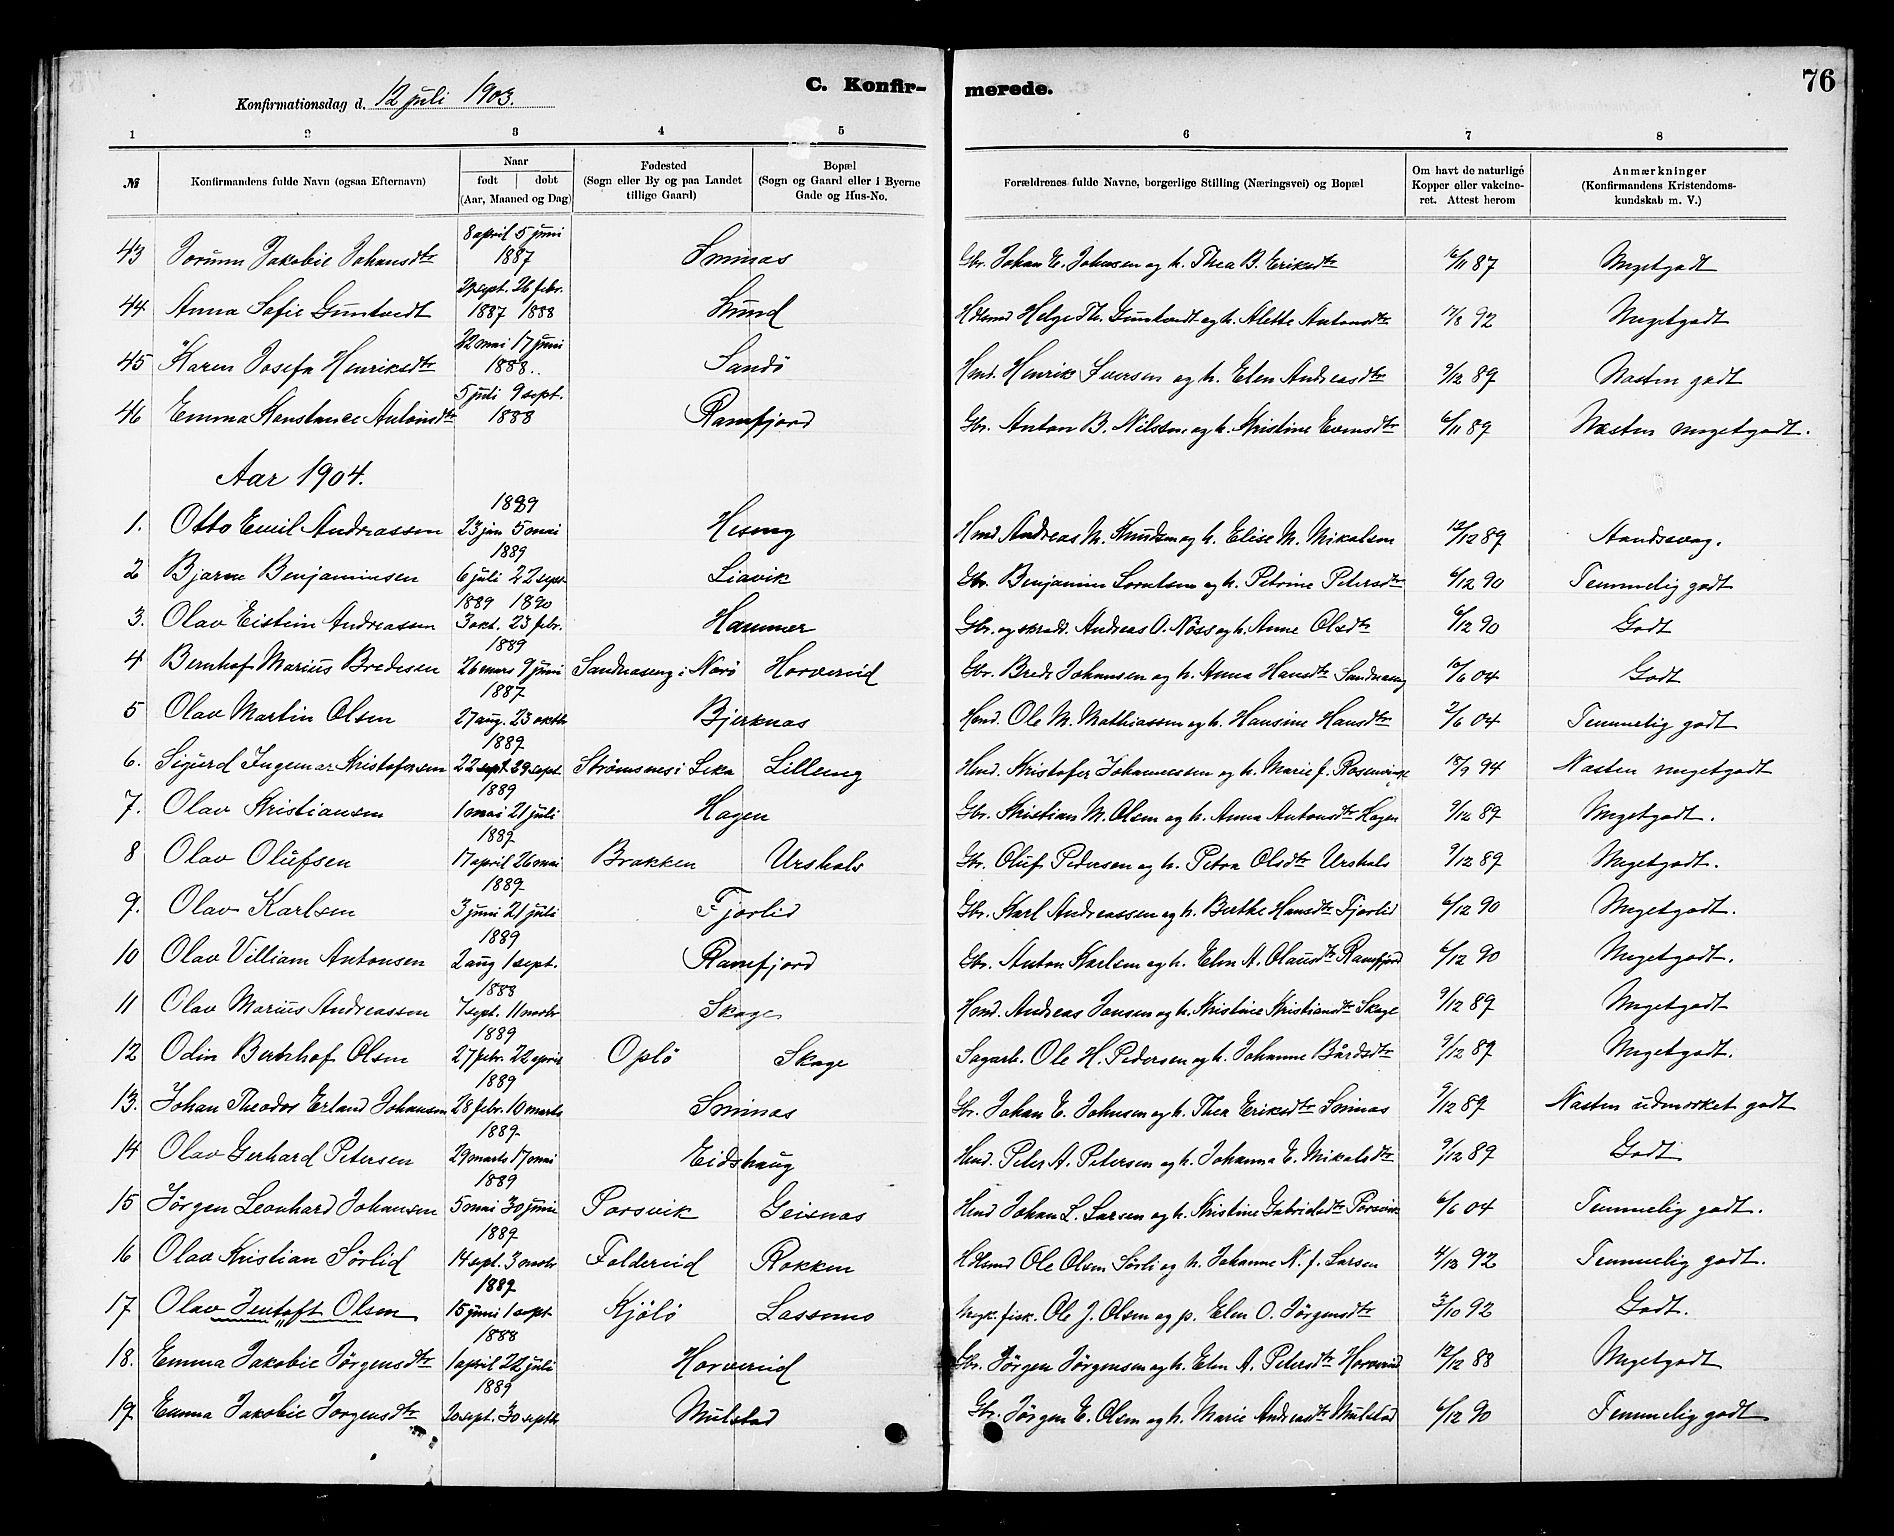 76
Konfirmationsdag d. 12 juli 1903.
C. Konfir-
merede.
1 2 3 4 5 6 7 8
№ | Konfirmandens fulde Navn (ogsaa Efternavn) | Naar født | døbt (Aar, Maaned og Dag) | Fødested (Sogn eller By og paa Landet tillige Gaard) | Bopæl (Sogn og Gaard eller i Byerne Gade og Hus-No. | Forældrenes fulde Navne, borgerlige Stilling (Næringsvei) og Bopæl | Om havt de naturlige Kopper eller vakcineret. Attest herom | Anmærkninger (Konfirmandens Kristendomskundskab m. V.)
43 Jorunn Jakobie Johansdtr 8 april 5 juni 1887 Smines Gbr. Johan E. Johnsen og h. Thea B. Eriksdtr 6/11 87 Megetgodt
44 Anna Sofie Guntvedt 29 sept. 26 febr. 1887 1888 Sund Helge Th. Guntvedt og h. Alette Antonsdtr 17/8 92 Megetgodt
45 Karen Josefa Henriksdtr 22 mai 17 juni 1888. Sandö Hmd. Henrik Iversen og h. Elen Andreasdtr 9/12 89 Næsten godt
46 Emma Konstance Antonsdtr 5 juli 9 sept. 1888 Ramfjord Gbr. Anton B. Nilssen og h. Kristine Evensdtr 6/11 89 Næsten megetgodt.
Aar 1904.
1. Otto Emil Andreassen 1889 23 jan 5 mai Hmd. Andreas M. Knudsen og h. Elise M. Mikalsen 12/12 89 Aandssvag.
2 Bjarne Benjaminsen 1889 6 juli 22 sept. Liavik Gbr. Benjamin Lorntsen og h. Petrine Petersdtr 6/12 90 Temmelig godt
3. Olav Eistein Andreassen 1889 1890 3 okt. 23 febr. Hammer Gbr. og skrædr. Andreas O. Nöss og h. Anne Olsdtr 6/12 90 Godt
4 Bernhof Marius Bredesen 1889 26 mars 9 juni Sandnaseng i Narö Horvereid Gbr. Brede Johansen og h. Anna Hansdtr Sandnaseng 6/6 04 Godt
5 Olav Martin Olsen 1887 27 aug. 23 oktbr Bjerknas Hmd. Ole M. Mathiassen og h. Hansine Hansdtr 2/6 04 Temmelig godt
6. Sigurd Ingemar Kristofersen 1889 22 sept. 29 sept. Strömsnes i Leka Lilleeng Hmd. Kristofer Johannessen og h. Marie f. Rosenvinge 18/9 94 Næsten megetgodt
7. Olav Kristiansen 1889 1 mai 21 juli Hagen Gbr. Kristian M. Olsen og h. Anna Antonsdtr Hagen 9/12 89 Megetgodt.
8 Olav Olufsen 1887 17 april 26 mai Brakken Urshals Gbr. Oluf Pedersen og h. Petra Olsdtr Urshals 9/12 89 Megetgodt.
9. Olav Karlsen 1889 3 juni 21 juli Fjorlid Gbr. Karl Andreassen og h. Berthe Hansdtr Fjorlid 6/12 90 Megetgodt.
10 Olav Villiam Antonsen 1889 2 aug 1 sept. Ramfjord Gbr. Anton Karlsen og h. Elen A. Olausdtr Ramfjord 6/12 90 Megetgodt.
11 Olav Marius Andreassen 1888 7 sept. 11 novbr Skage Hmd. Andreas Jensen og h. Kristine Kristiansdtr Skage 9/12 89 Megetgodt
12 Odin Bernhof Olsen 1889 27 febr. 22 april Oplö Skage Sagarb. Ole H. Pedersen og h. Johanne Bårdsdtr 9/12 89 Megetgodt.
13. Johan Theodor Erland Johansen 1889 28 febr. 10 marts Smines Gbr. Johan E. Johnsen og h. Thea Eriksdtr Smines 9/12 89 Næsten udmærket godt
14 Olav Gerhard Petersen 1889 29 marts 17 mai Eidshaug Hmd. Peter A. Petersen og h. Johanna E. Mikalsdtr 9/12 89 Godt
15 Jörgen Leonhard Johansen 1889 5 mai 30 junie Porsvik Geisnas Hmd Johan L. Larsen og h. Kristine Gabrielsdtr Porsvik 6/6 04 Temmelig godt.
16 Olav Kristian Sörlid 1889 14 sept. 3 novbr Foldereid Rokken Ole Olsen Sörli og h. Johanne N. f. Larsen 4/12 92 Temmelig godt.
17 Olav Jentoft Olsen 1889 15 juni 1 sept Kjölö Lassemo fisk. Ole J. Olsen og p. Elen O. Jörgensdtr 3/10 92 Godt.
18. Emma Jakobie Jörgensdtr 1888 1 april 22 juli Horvereid Gbr. Jörgen Jörgensen og h. Elen A. Petersdtr Horvereid 12/12 88 Megetgodt
19. Emma Jakobie Jorgensdtr 1889 2 sept. 30 septb Mulstad Gbr. Jörgen E. Olsen og h. Marie Andreasdtr Mulstad 6/12 90 Temmelig godt